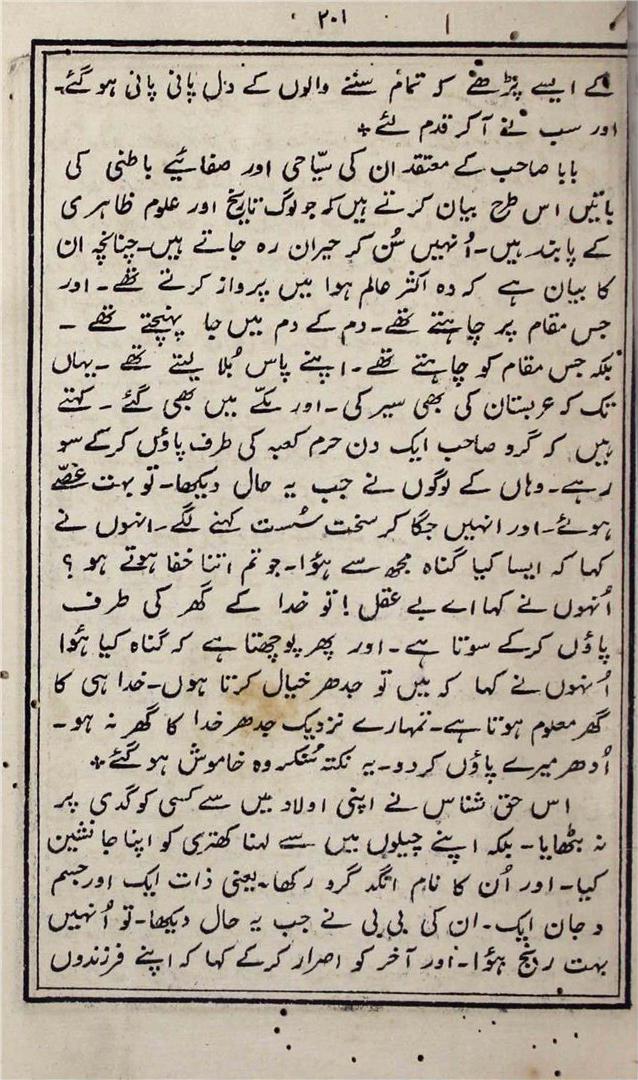 ۲۰۱
کے ایسے پڑھے کہ تمام سننے والوں کے دل پانی پانی ہو گئے۔
اور سب نے آ کر قدم لئے ٭
بابا صاحب کے معتقد ان کی سیّاحی اور صفائیے باطنی کی
باتیں اس طرح بیان کرتے ہیں کہ جو لوگ تاریخ اور علوم ظاہری
کے پابند ہیں۔ اُنہیں سُن کر حیران رہ جاتے ہیں۔ چنانچہ ان
کا بیان ہے کہ وہ اکثر عالم ہوا میں پرواز کرتے تھے۔ اور
جس مقام پر چاہتے تھے۔ دم کے دم میں جا پہنچتے تھے ۔
بلکہ جس مقام کو چاہتے تھے۔ اپنے پاس بُلا لیتے تھے ۔ یہاں
تک کہ عربستان کی بھی سیر کی ۔ اور مکّے میں بھی گئے ۔ کہتے
ہیں کہ گرو صاحب ایک دن حرم کعبہ کی طرف پاؤں کرکے سو
رہے۔ وہاں کے لوگوں نے جب یہ حال دیکھا۔ تو بہت غصّے
ہوئے۔ اور انہیں جگا کر سخت سُست کہنے لگے۔ انہوں نے
کہا کہ ایسا کیا گناہ مجھ سے ہؤا۔ جو تم اتنا خفا ہوتے ہو ؟
اُنہوں نے کہا اے بے عقل ! تو خدا کے گھر کی طرف
پاؤں کرکے سوتا ہے۔ اور پھر پوچھتا ہے کہ گناہ کیا ہؤا
اُنہوں نے کہا کہ میں تو جدھر خیال کرتا ہوں۔ خدا ہی کا
گھر معلوم ہوتا ہے۔ تمہارے نزدیک جدھر خدا کا گھر نہ ہو ۔
اُدھر میرے پاؤں کر دو۔ یہ نکتہ سُنکر وہ خاموش ہو گئے ٭
اس حق شناس نے اپنی اولاد میں سے کسی کو گدی پر
نہ بٹھایا ۔ بلکہ اپنے چیلوں میں سے لہنا کھتری کو اپنا جانشین
کیا۔ اور اُن کا نام انگد گرو رکھا۔ یعنی ذات ایک اور جسم
و جان ایک۔ ان کی بی بی نے جب یہ حال دیکھا۔ تو اُنہیں
بہت رنج ہؤا۔ اور آخر کو اصرار کرکے کہا کہ اپنے فرزندوں